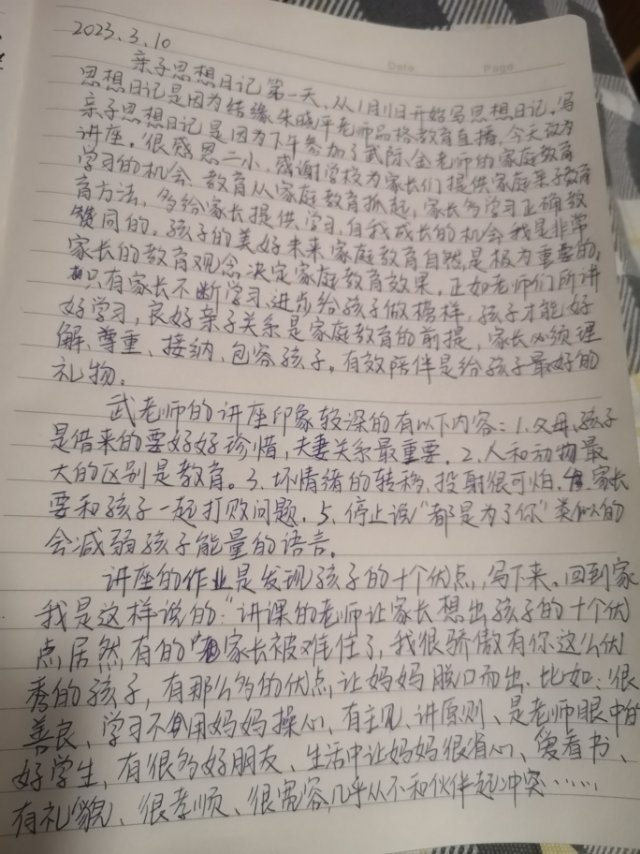 2023.3.10
Date Page
亲子思想日记第一天,从1月11日开始写思想日记。写
思想日记是因为结缘朱晓平老师品格教育直播,今天改为
亲子思想日记是因为下午参加了武际金老师的家庭教育
讲座。很感恩二小,感谢学校为家长们提供家庭亲子教育
学习的机会。教育从家庭教育抓起,家长多学习正确教
育方法,多给家长提供学习、自我成长的机会我是非常
赞同的。孩子的美好未来家庭教育自然是极为重要的,
家长的教育观念决定家庭教育效果。正如老师们所讲
只有家长不断学习、进步给孩子做榜样,孩子才能好
好学习,良好亲子关系是家庭教育的前提,家长必须理
解、尊重、接纳、包容孩子。有效陪伴是给孩子最好的
礼物。
武老师的讲座印象较深的有以下内容:1.父母、孩子
是借来的要好好珍惜,夫妻关系最重要。2.人和动物最
大的区别是教育。3.坏情绪的转移、投射很可怕。4.家长
要和孩子一起打败问题。5.停止说“都是为了你”类似的
会减弱孩子能量的语言。
讲座的作业是发现孩子的十个优点,写下来。回到家
我是这样说的:“讲课的老师让家长想出孩子的十个优
点,居然有的家长被难住了,我很骄傲有你这么优
秀的孩子,有那么多的优点,让妈妈脱口而出。比如:很
善良、学习不用妈妈操心、有主见、讲原则、是老师眼中的
好学生,有很多好朋友、生活中让妈妈很省心、爱看书、
有礼貌、很孝顺、很宽容,几乎从不和伙伴起冲突……